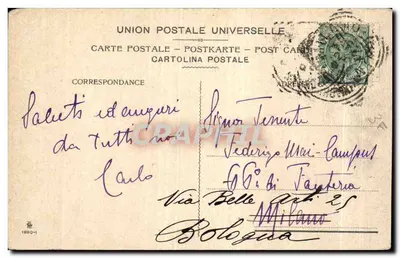 UNION POSTALE UNIVERSELLE
CARTE POSTALE – POSTKARTE – POST CAR
CARTOLINA POSTALE
CORRESPONDANCE
Saluti ed auguri
da tutti noi
Carlo
Signor Tenente
Federigo
66° di Fanteria
Via Belle Arti 25
Milano
Bologna